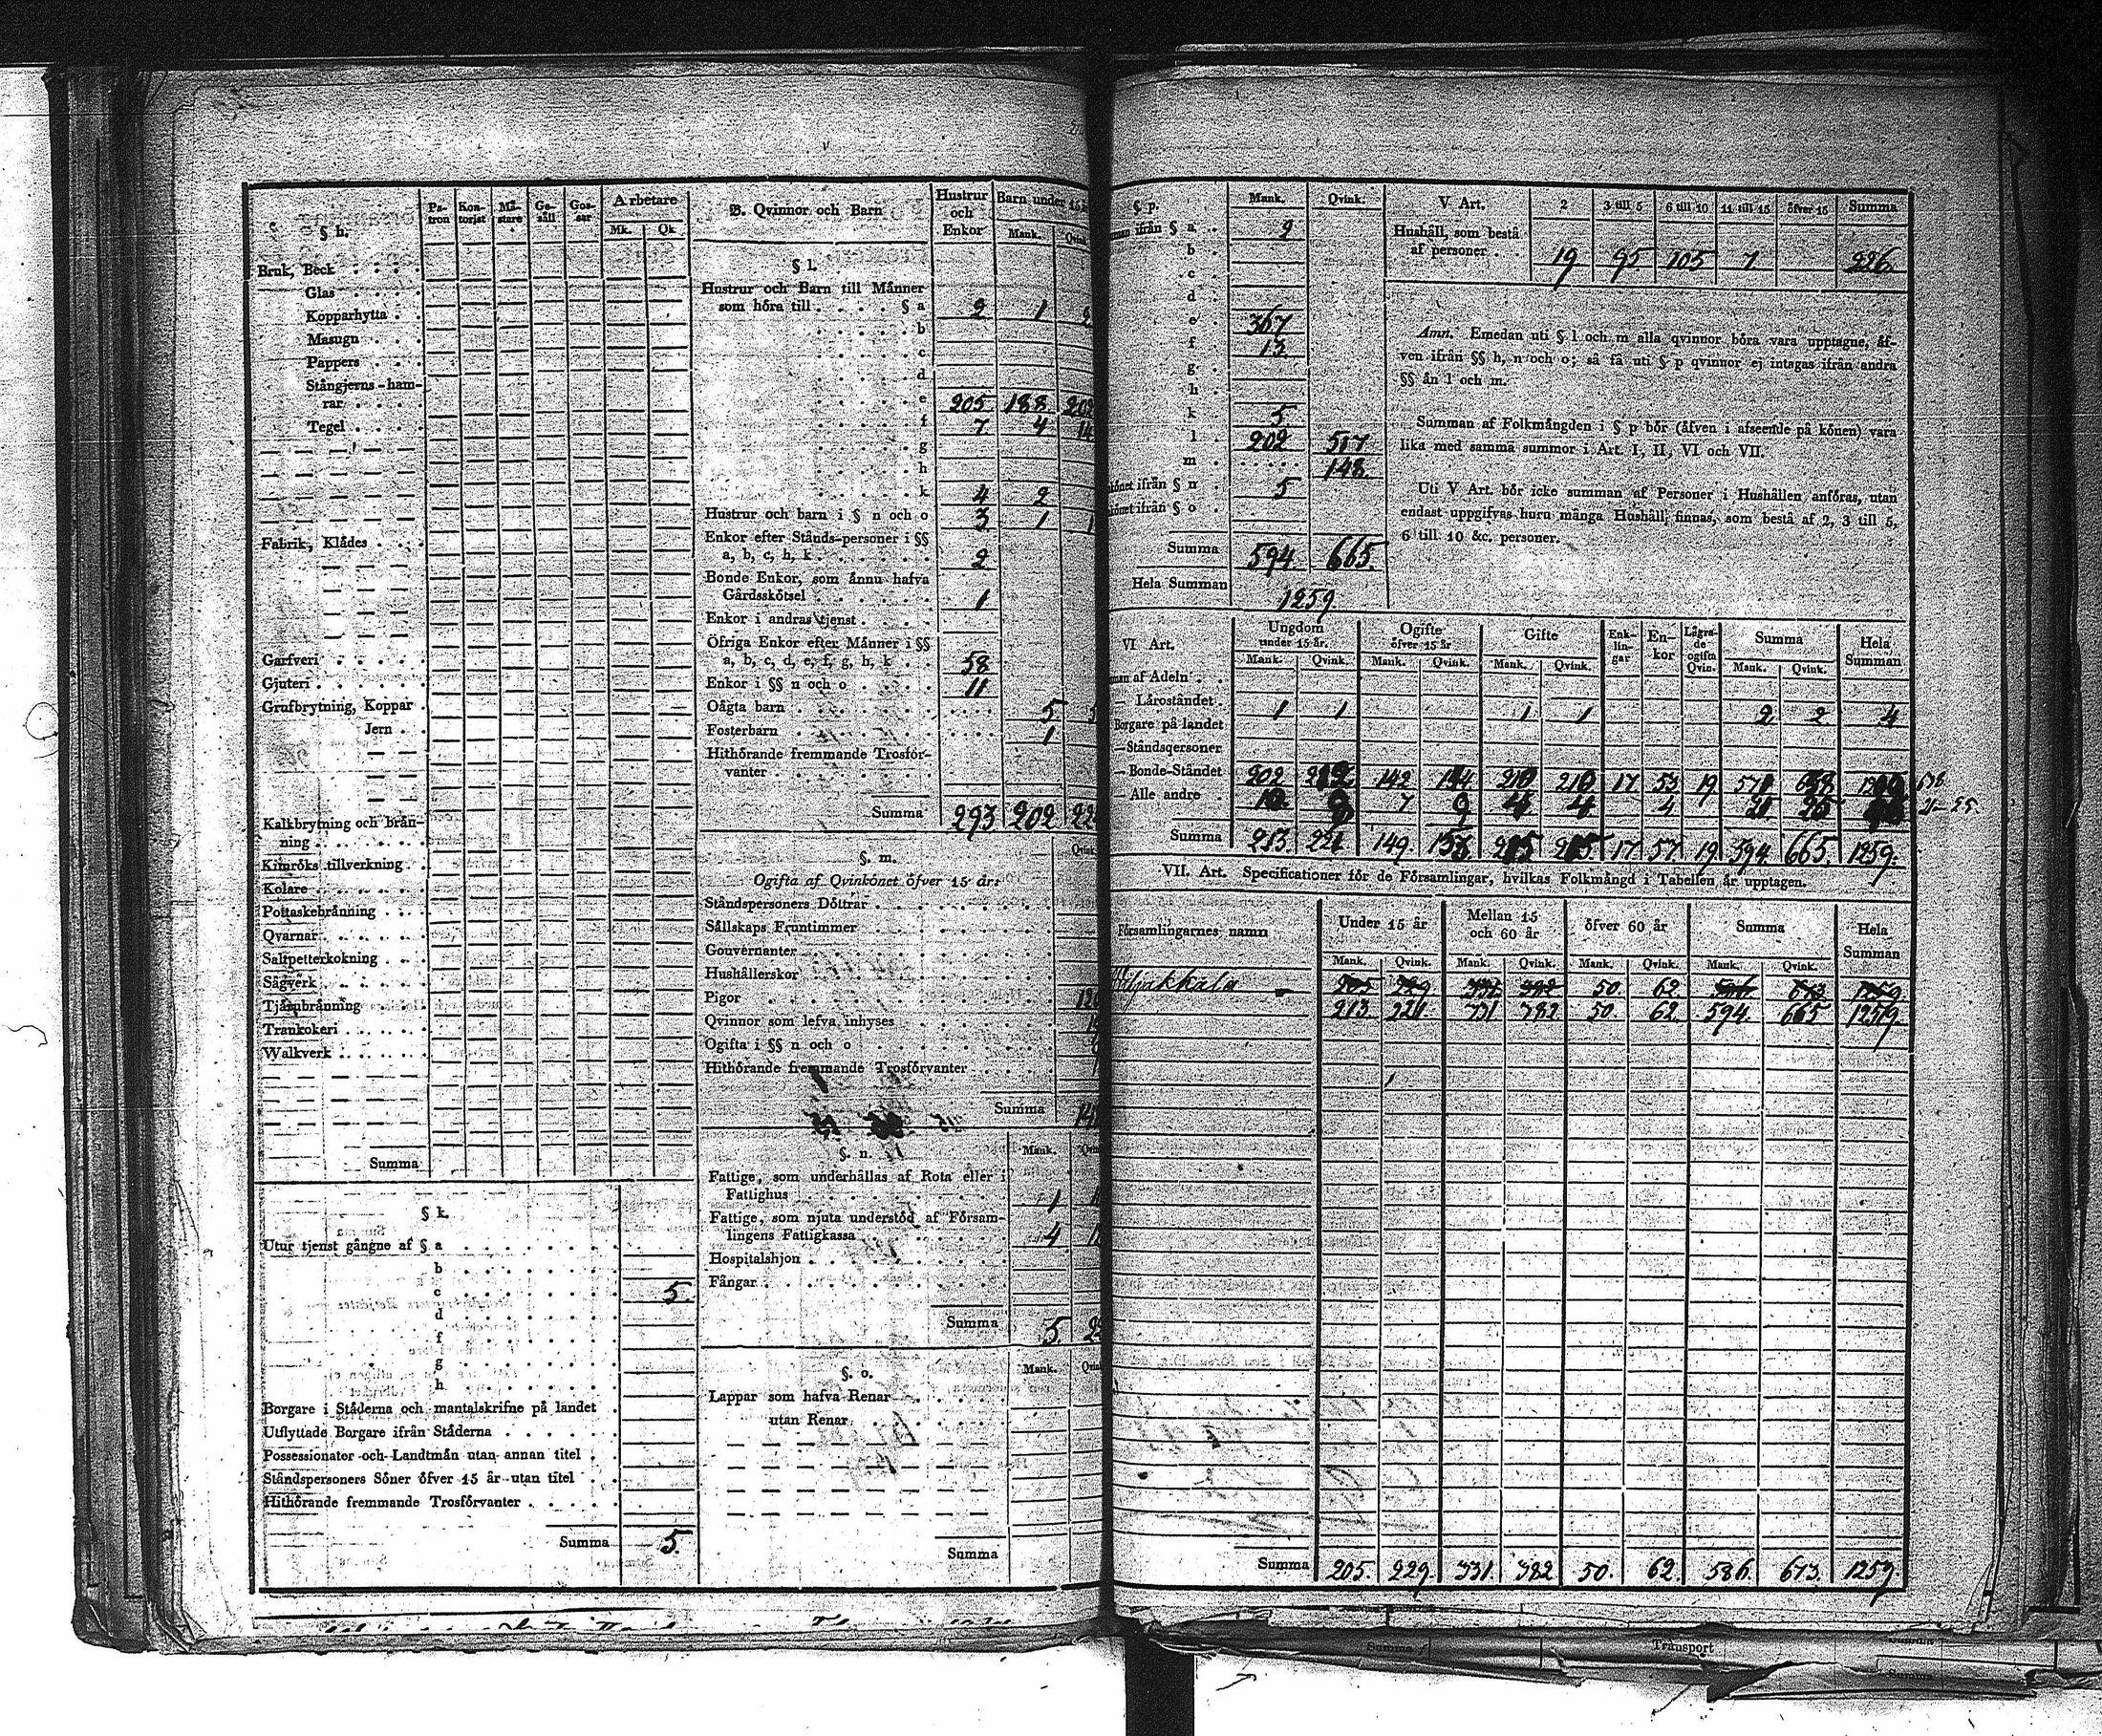 § h.
Pa-tron Kon-torist Mä-stare Ge-säll Gos-sar Arbetare
Mk. Qk
Bruk, Beck
Glas
Kopparhytta
Masugn
Pappers
Stångjerns-ham-
rar
Tegel
Fabrik, Klådes
Garfveri
Gjuteri
Grufbrytning, Koppar
Jern
Kalkbrytning och brån-
ning
Kimröks tillverkning
Kolare
Pottaskebrånning
Qvarnar
Saltpetterkokning
Sågverk
Tjårubrånning
Trankokeri
Walkverk
Summa
§ k.
Utur tjenst gångne af § a
b
c 5.
d
f
g
h
Borgare i Ståderna och mantalskrifne på landet
Utflyttade Borgare ifrån Ståderna
Possessionater och Landtmån utan annan titel
Ståndspersoners Söner öfver 15 år utan titel
Hithörande fremmande Trosförvanter
Summa 5.
B. Qvinnor och Barn
Hustrur och Enkor Barn under 15
Mank. Qvink.
§ l.
Hustrur och Barn till Månner
som höra till § a 2 1 2
b
c
d
e 205 188 202
f 7 4 14
g
h
k 4 2
Hustrur och barn i § n och o 3 1 1
Enkor efter Stånds-personer i §§
a, b, c, h, k 2
Bonde Enkor, som ånnu hafva
Gårdsskötsel 1
Enkor i andras tjenst
Öfriga Enkor efter Månner i §§
a, b, c, d, e, f, g, h, k 58
Enkor i §§ n och o 11
Oågta barn 5
Fosterbarn 1
Hithörande fremmande Trosför-
vanter
Summa 293 202
§. m.
Qvink.
Ogifta af Qvinkönet öfver 15 år:
Ståndspersoners Döttrar
Sållskaps Fruntimmer
Gouvernanter
Hushållerskor
Pigor
Qvinnor som lefva inhyses
Ogifta i §§ n och o
Hithörande fremmande Trosförvanter
Summa
§. n.
Mank.
Fattige, som underhållas af Rota eller i
Fattighus 1
Fattige, som njuta understöd af Försam-
lingens Fattigkassa 4
Hospitalshjon
Fångar
Summa 5
§. o.
Mank.
Lappar som hafva Renar
utan Renar
Summa
§ p. Mank. Qvink.
ifrån § a 2
b
c
d
e 367
f 13
g
h
k 5
l 202 517
m 148.
ifrån § n 5
ifrån § o
Summa 594 665.
Hela Summan 1259.
V Art. 2 3 till 5 6 till 10 11 till 15 öfver 15 Summa
Hushåll, som bestå
af personer 19 95 105 7 226.
Anm. Emedan uti § l och m alla qvinnor böra vara upptagne, åf-
ven ifrån §§ h, n och o; så få uti § p qvinnor ej intagas ifrån andra
§§ ån l och m.
Summan af Folkmångden i § p bör (åfven i afseende på könen) vara
lika med samma summor i Art. I, II, VI och VII.
Uti V Art. bör icke summan af Personer i Hushållen anföras, utan
endast uppgifvas huru många Hushåll finnas, som bestå af 2, 3 till 5,
6 till 10 &c. personer.
VI Art. Ungdom under 15 år. Ogifte öfver 15 år Gifte Enk-lin-gar En-kor Lågra-de ogifta Qvin. Summa Hela Summan
Mank. Qvink. Mank. Qvink. Mank. Qvink. Mank. Qvink.
af Adeln
— Låroståndet 1 1 1 1 2 2 4
Borgare på landet
— Ståndspersoner
— Bonde-Ståndet 202 142 210 210 17 53 19
— Alle andre 7 9 4 4 4 21 25
Summa 213. 221 149 215 215 17 57 19 594 665. 1259.
VII. Art. Specificationer för de Församlingar, hvilkas Folkmångd i Tabellen år upptagen.
Församlingarnes namn Under 15 år Mellan 15 och 60 år öfver 60 år Summa Hela Summan
Mank. Qvink. Mank. Qvink. Mank. Qvink. Mank. Qvink.
Wiljakkala 205 229 331 382 50 62 586 673 1259.
213 221 331 382 50 62 594. 665 1259.
Summa 205. 229. 331. 382 50. 62. 586. 673. 1259.
Summa Transport
Summa